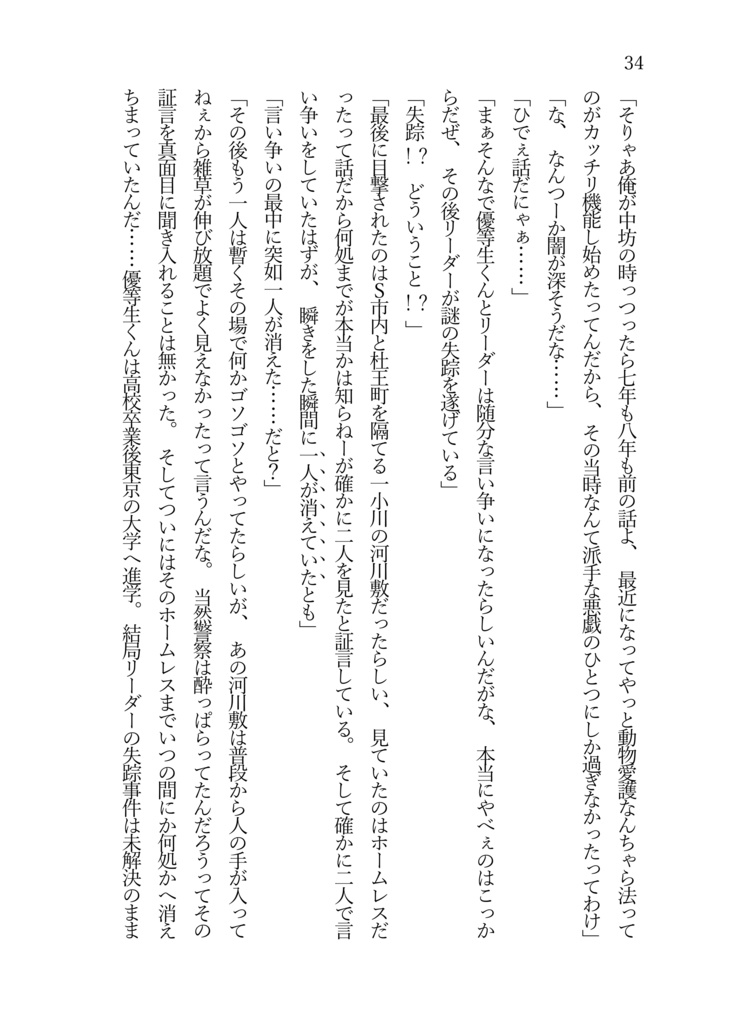 34
「そりゃあ俺が中坊の時っつったら七年も八年も前の話よ、最近になってやっと動物愛護なんちゃら法って
のがカッチリ機能し始めたってんだから、その当時なんて派手な悪戯のひとつにしか過ぎなかったってわけ」
「な、なんつーか闇が深そうだな……」
「ひでぇ話だにゃぁ……」
「まぁそんなで優等生くんとリーダーは随分な言い争いになったらしいんだがな、本当にやべぇのはこっか
らだぜ、その後リーダーが謎の失踪を遂げている」
「失踪！？　どういうこと！？」
「最後に目撃されたのはＳ市内と杜王町を隔てる一小川の河川敷だったらしい、見ていたのはホームレスだ
ったって話だから何処までが本当かは知らねーが確かに二人を見たと証言している。そして確かに二人で言
い争いをしていたはずが、瞬きをした瞬間に一人が消えていたとも」
「言い争いの最中に突如一人が消えた……だと？」
「その後もう一人は暫くその場で何かゴソゴソとやってたらしいが、あの河川敷は普段から人の手が入って
ねぇから雑草が伸び放題でよく見えなかったって言うんだな。当然警察は酔っぱらってたんだろうってその
証言を真面目に聞き入れることは無かった。そしてついにはそのホームレスまでいつの間にか何処かへ消え
ちまっていたんだ……優等生くんは高校卒業後東京の大学へ進学。結局リーダーの失踪事件は未解決のまま